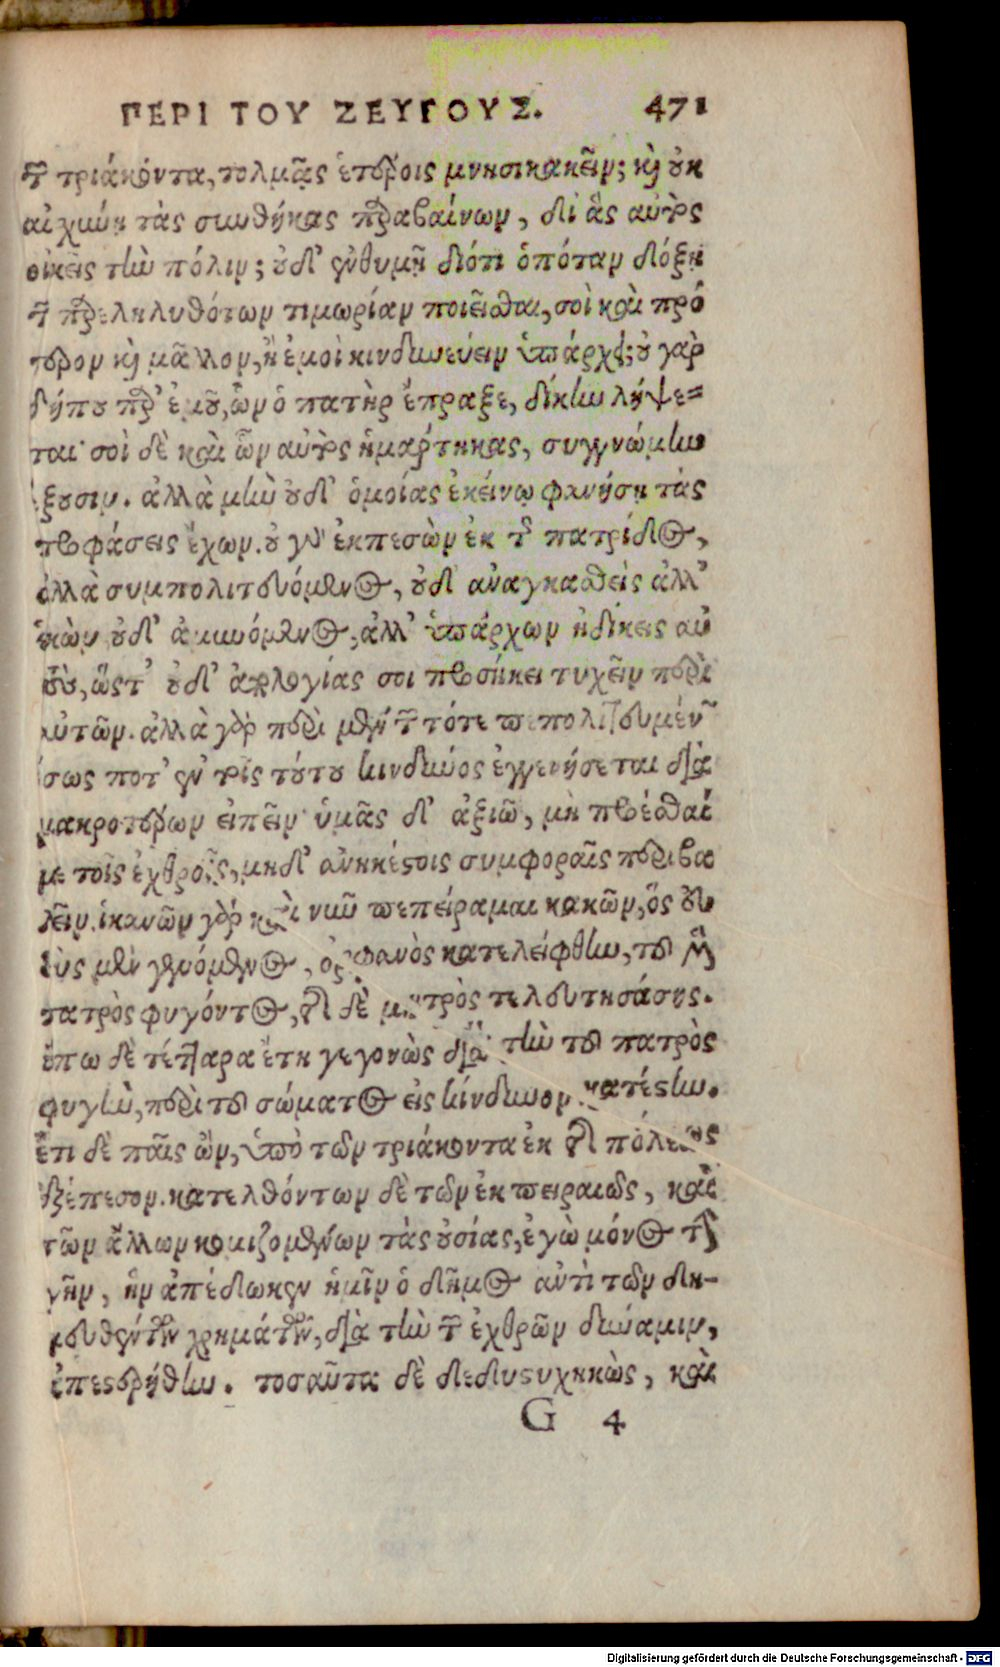 ΠΕΡΙ ΤΟΥ ΖΕΥΓΟΥΣ. 471
τῶν τριάκοντα, τολμᾷς ἑτέροις μνησικακεῖν; καὶ οὐκ
αἰσχύνῃ τὰς συνθήκας παραβαίνων, δι' ἃς αὐτὸς
οἰκεῖς τὴν πόλιν; οὐδ' ἐνθυμῇ διότι ὁπόταν δόξῃ
τῶν παρεληλυθότων τιμωρίαν ποιεῖσθαι, σοὶ καὶ πρό
τερον καὶ μᾶλλον, ἢ ἐμοὶ κινδυνεύειν ὑπάρχει; οὐ γὰρ
δήπου παρ' ἐμοῦ, ὧν ὁ πατὴρ ἔπραξε, δίκην λήψε=
ται· σοὶ δὲ καὶ ὧν αὐτὸς ἡμάρτηκας, συγγνώμην
ἕξουσιν. ἀλλὰ μὴν οὐδ' ὁμοίας ἐκείνῳ φανήσῃ τὰς
προφάσεις ἔχων. οὐ γὰρ ἐκπεσὼν ἐκ τῆς πατρίδος,
ἀλλὰ συμπολιτευόμενος, οὐδ' ἀναγκασθεὶς ἀλλ'
ἑκὼν οὐδ' ἀμυνόμενος, ἀλλ' ὑπάρχων ἠδίκεις αὐ
τοὺ, ὥστ' οὐδ' ἀπολογίας σοι προσήκει τυχεῖν περὶ
αὐτῶν. ἀλλὰ γὰρ περὶ μὲν τῶν τότε πεπολιτευμένων
ἴσως ποτ' ἐν τοῖς τούτου κινδύνοις ἐγγενήσεται διὰ
μακροτέρων εἰπεῖν· ὑμᾶς δ' ἀξιῶ, μὴ προέσθαι
με τοῖς ἐχθροῖς, μηδ' ἀνηκέστοις συμφοραῖς περιβα
λεῖν. ἱκανῶν γὰρ καὶ νῦν πεπείραμαι κακῶν, ὃς εὐ
θὺς μὲν γενόμενος, ὀρφανὸς κατελείφθην, τοῦ μὲν
πατρὸς φυγόντος, τῆς δὲ μητρὸς τελευτησάσης.
οὔπω δὲ τέτταρα ἔτη γεγονὼς διὰ τὴν τοῦ πατρὸς
φυγὴν, περὶ τοῦ σώματος εἰς κίνδυνον κατέστην.
ἔτι δὲ παῖς ὢν, ὑπὸ τῶν τριάκοντα ἐκ τῆς πόλεως
ἐξέπεσον. κατελθόντων δὲ τῶν ἐκ πειραιῶς, καὶ
τῶν ἄλλων κομιζομένων τὰς οὐσίας, ἐγὼ μόνος τὴν
γῆν, ἣν ἀπέδωκεν ἡμῖν ὁ δῆμος ἀντὶ τῶν δη-
μευθέντων χρημάτων, διὰ τὴν τῶν ἐχθρῶν δύναμιν,
ἀπεστερήθην. τοσαῦτα δὲ δεδυστυχηκὼς, καὶ
G 4
Digitalisierung gefördert durch die Deutsche Forschungsgemeinschaft - DFG